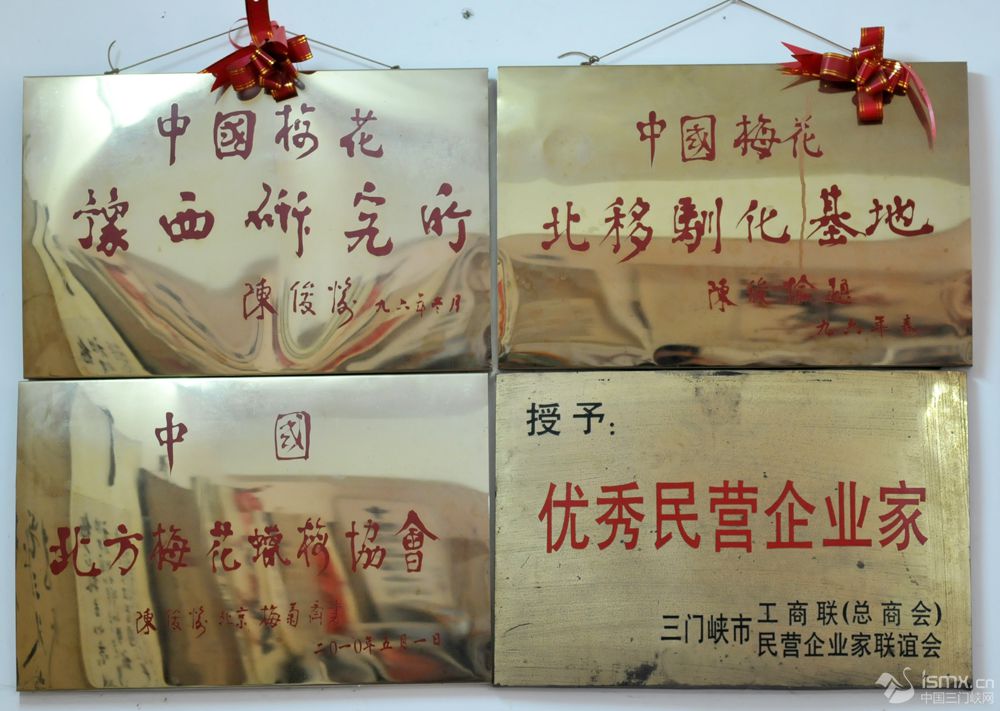 中國梅花
豫西研究所
陳俊愉 九六年冬月
中國梅花
北移馴化基地
陳俊愉題
九六年春
中國
北方梅花蠟梅協會
陳俊愉北京梅菊齋
二〇一〇年五月一日
授予:
优秀民营企业家
三门峡市
工商联(总商会)
民营企业家联谊会
ismx.cn
中国三门峡网